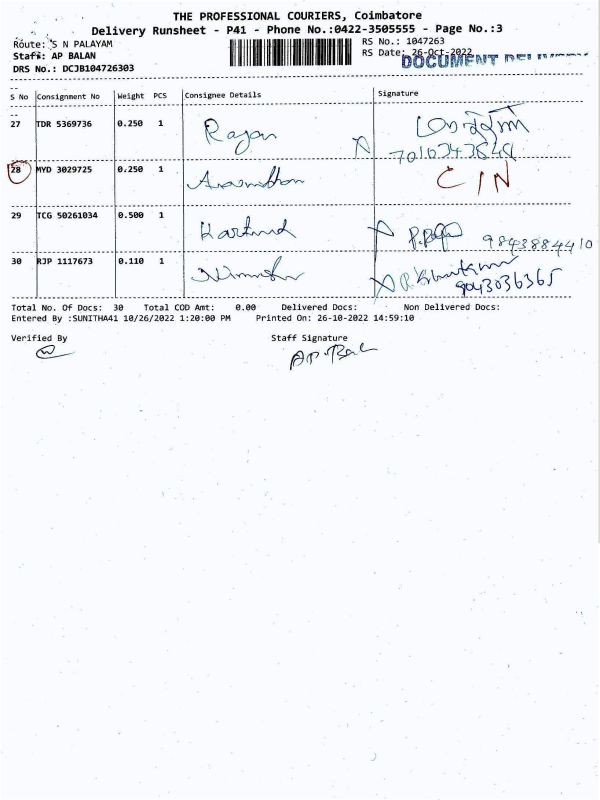 THE PROFESSIONAL COURIERS, Coimbatore
Delivery Runsheet - P41 - Phone No.:0422-3505555 - Page No.:3
Route: S N PALAYAM RS No.: 1047263
Staff: AP BALAN RS Date: 26-Oct-2022
DOCUMENT DELIVERY
DRS No.: DCJB104726303
S No Consignment No Weight PCS Consignee Details Signature
27 TDR 5369736 0.250 1 Rajan
28 MYD 3029725 0.250 1 C/N
29 TCG 50261034 0.500 1 9843884410
30 RJP 1117673 0.110 1 9043036365
Total No. Of Docs: 30 Total COD Amt: 0.00 Delivered Docs: Non Delivered Docs:
Entered By :SUNITHA41 10/26/2022 1:20:00 PM Printed On: 26-10-2022 14:59:10
Verified By Staff Signature
AP.Bal